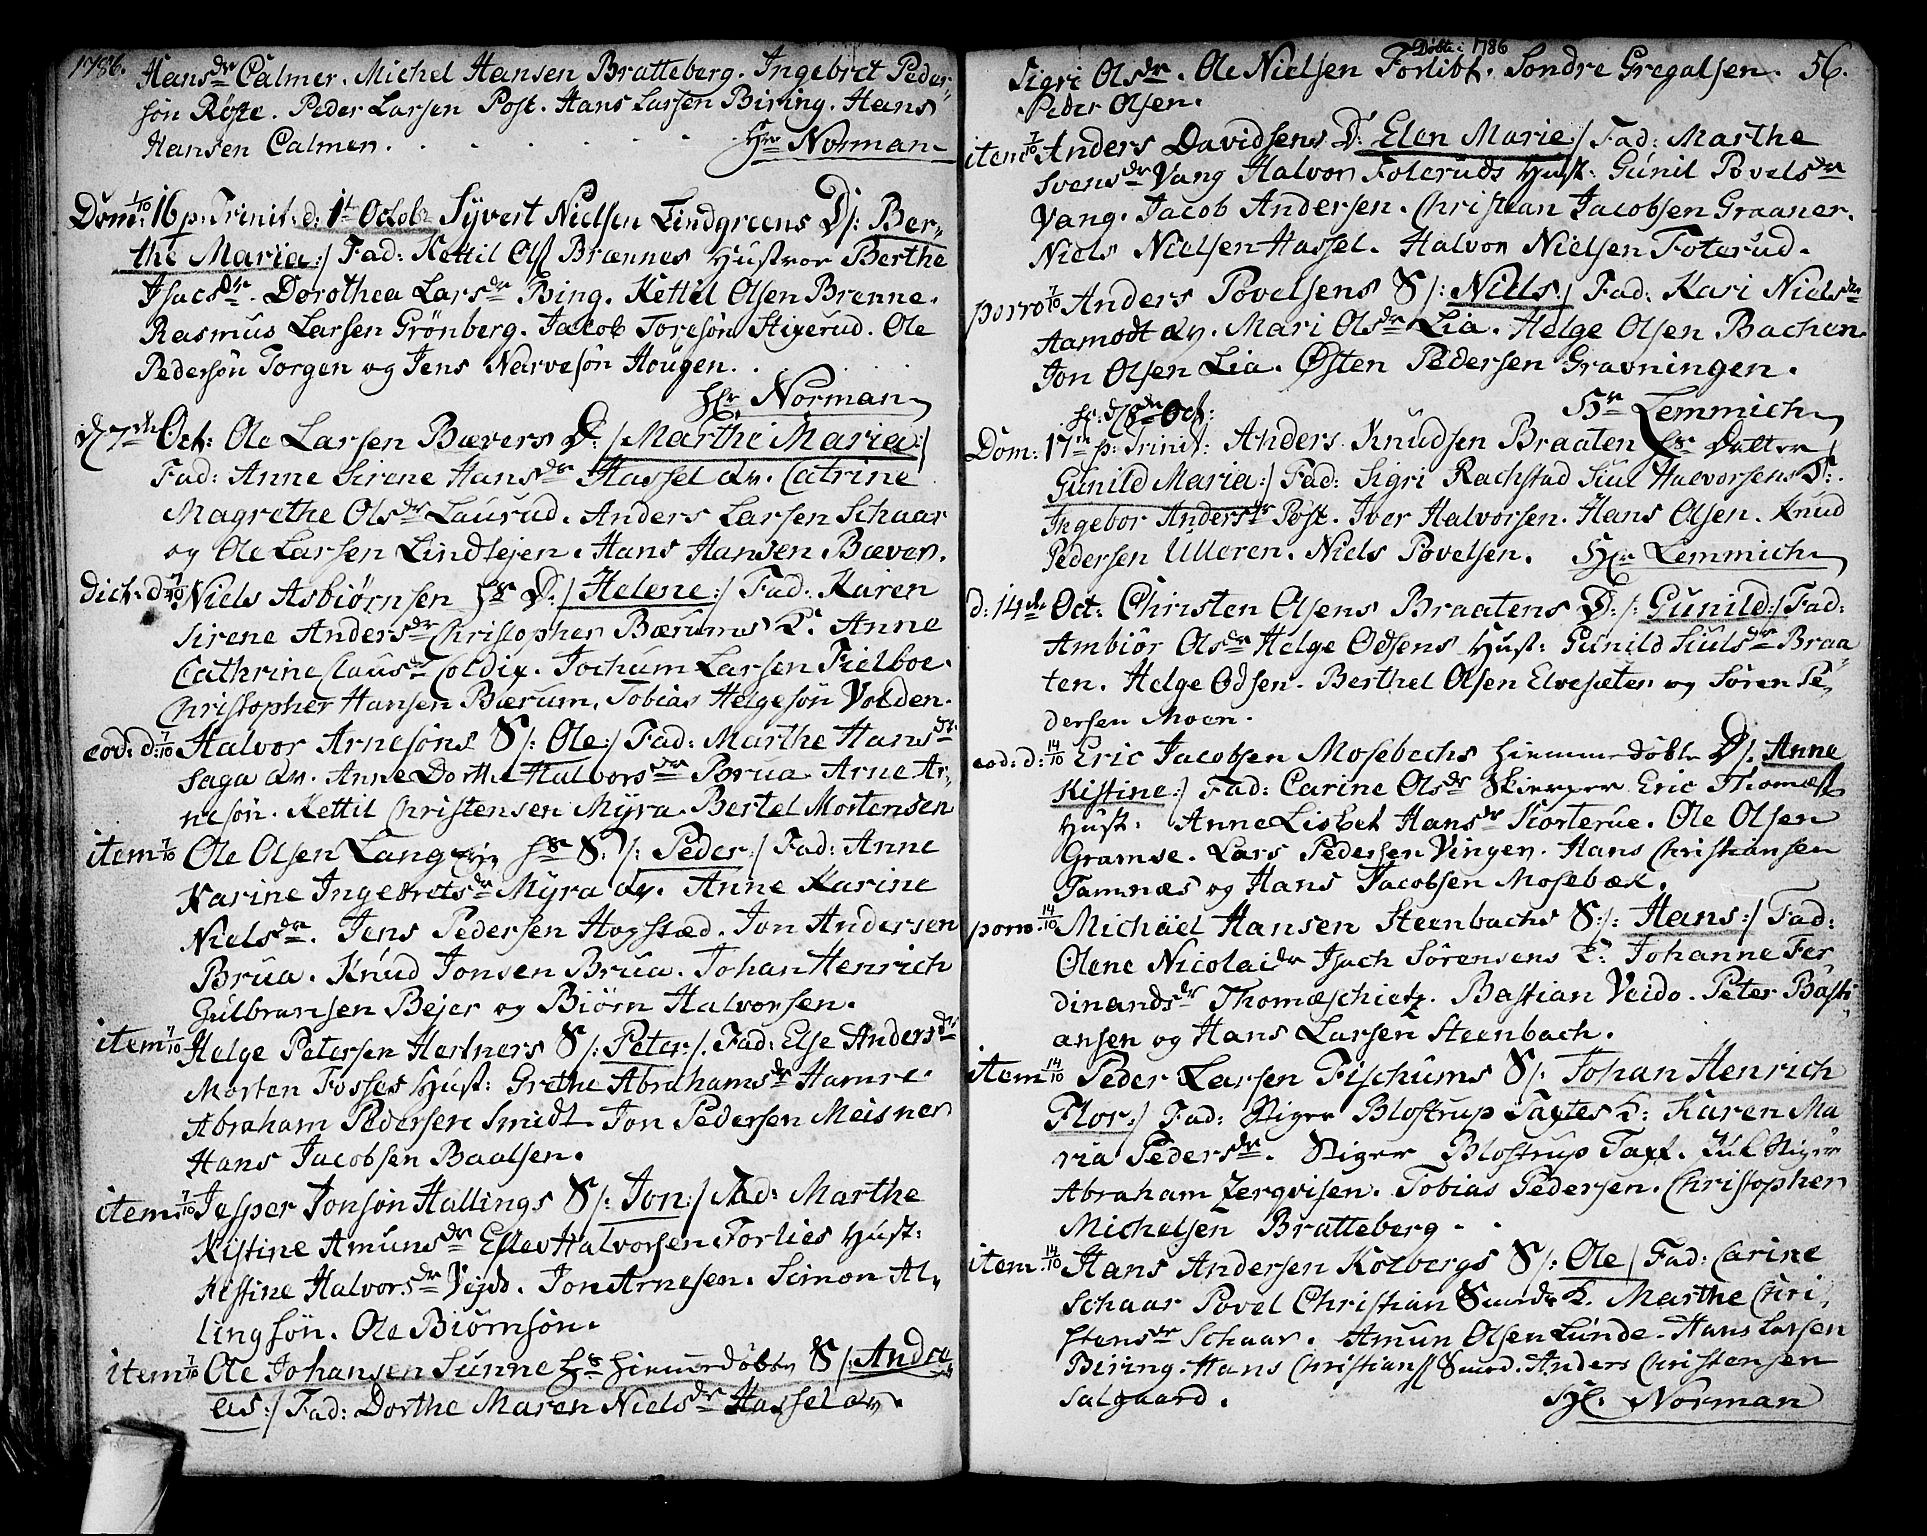 1786.
Hans dr Calmer. Michel Hansen Bratteberg. Ingebret Peder-
søn Røste. Peder Larsen Post. Hans Larsen Biring. Hans
Hansen Calmer. Hr Norman
Dom: 1/10 16 p: Trinit: d: 1t Octob: Syvert Nielsen Lindgreens D/: Ber-
the Maria:/ Fad: Kettil Ols Brænnes Hustroe Berthe
Isacs dr. Dorothea Lars dr Bing. Kettil Olsen Brenne.
Rasmus Larsen Grönberg. Jacob Toresön Stigerud. Ole
Pedersön Torgen og Jens Narvesön Hougen.
Hr Norman
d 7de Oct: Ole Larsen Bævers D:/ Marthe Maria:/
Fad: Anne Sirene Hans dr Hassel av. Catrine
Magrethe Ols dr Laurud. Anders Larsen Schaar
og Ole Larsen Lindlejen. Hans Hansen Bæver.
dict. d: 7/10 Niels Asbiørnsen Hs D:/ Helene:/ Fad: Karen
Sirene Anders dr Christopher Bærums K: Anne
Cathrine Claus dr Coldix. Jochum Larsen Fielboe.
Christopher Hansen Bærum. Tobias Helgesøn Volden.
eod: d: 7/10 Halvor Arnesöns S/: Ole:/ Fad: Marthe Hans dr
Saga av. Anne Dorthe Halvors dr Brua. Arne Ar-
nesön. Kettil Christensen Myra. Bertel Mortensen
item 7/10 Ole Olsen Lang Hs S:/: Peder:/ Fad: Anne
Karine Ingebrets dr Myra av. Anne Karine
Niels dr. Jens Pedersen Hogstæd. Jon Andersen
Brua. Knud Jonsen Brua. Johan Henrich
Gulbransen Bejer og Biörn Halvorsen.
item 7/10 Helge Petersen Hertners S/: Peter:/. Fad: Else Anders dr
Morten Fosses Hust: Grethe Abrahams dr Hamre.
Abraham Pedersen Smidt. Jon Pedersen Meisner
Hans Jacobsen Baalsen.
item 7/10 Jesper Jonsön Hallings S/: Jon:/ Fad: Marthe
Kistine Amuns dr Ellev Halvorsen Forlies Hust:
Kistine Halvors dr Vejdd. Jon Arnesen. Simon Al-
lingsön. Ole Biörnsön.
item 7/10 Ole Johansen Sunne Hs hiemmedöbte S/: Andre
as:/ Fad: Dorthe Maren Niels dr Hassel av.
Döbte: 1786
56.
Sigri Ols dr. Ole Nielsen Forlibt. Sondre Gregalsen.
Peder Olsen.
item 7/10 Anders Davidsens D: Elen Marie:/ Fad: Marthe
Svens dr Vang Halvor Foteruds Hust: Gunil Povels dr
Vang. Jacob Andersen. Christian Jacobsen Graaner.
Niels Nielsen Hassel. Halvor Nielsen Foterud.
porro 7/10 Anders Povelsens S/: Niels:/ Fad: Kari Niels dr
Aamodt av. Mari Ols dr Lia. Helge Olsen Bachen
Jon Olsen Lia. Østen Pedersen Gravningen.
Hr Lemmich
d 8de Oct:
Dom: 17de p: Trinit: Anders Knudsen Braaten Hs Datter
Gunild Maria:/ Fad: Sigri Rachstad Siul Halvorsens K:
Ingebor Anders dr Post. Iver Halvorsen. Hans Olsen. Knud
Pedersen Ulleren. Niels Povelsen. Hr Lemmich
d: 14de Oct: Christen Olsens Braatens D:/: Gunild:/ Fad:
Ambiör Ols dr Helge Odsens Hust: Gunild Siuls dr Braa
ten. Helge Odsen. Berthel Olsen Elvesæter og Sören Pe-
dersen Moen.
eod: d: 14/10 Eric Jacobsen Mosebachs hiemmedöbte D/. Anne
Kistine:/ Fad: Carine Ols dr Skierper Eric Thomæs
Hust: Anne Lisbet Hans dr Korterue. Ole Olsen
Gramse. Lars Pedersen Vinger. Hans Christiansen
Tamnæs og Hans Jacobsen Mosebæk.
porro 14/10 Michäel Hansen Steenbachs S:/: Hans:/ Fad:
Olene Nicolai dr Isach Sörensens K: Johanne Fer
dinands dr Thomæschietz. Bastian Veido. Peter Basti-
ansen og Hans Larsen Steenbach.
item 14/10 Peder Larsen Fischums S/: Johan Henrich
Flor:/ Fad: Stiger Blostrup Taxtes K: Karen Ma
ria Peders dr. Stiger Blostrup Taxt. Stiger
Abraham Zerqvisen. Tobias Pedersen. Christopher
Michelsen Bratteberg.
item 14/10 Hans Andersen Kolbergs S/: Ole/ Fad: Carine
Schaar Povel Christian K. Marthe Chri-
stens dr Schaar. Amun Olsen Lunde. Hans Larsen
Biring. Hans Christian Anders Christensen
Salgaard. Hr. Norman